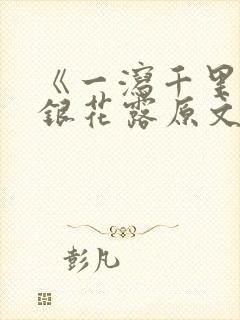 《一泻千里
银花露原文
彭凡